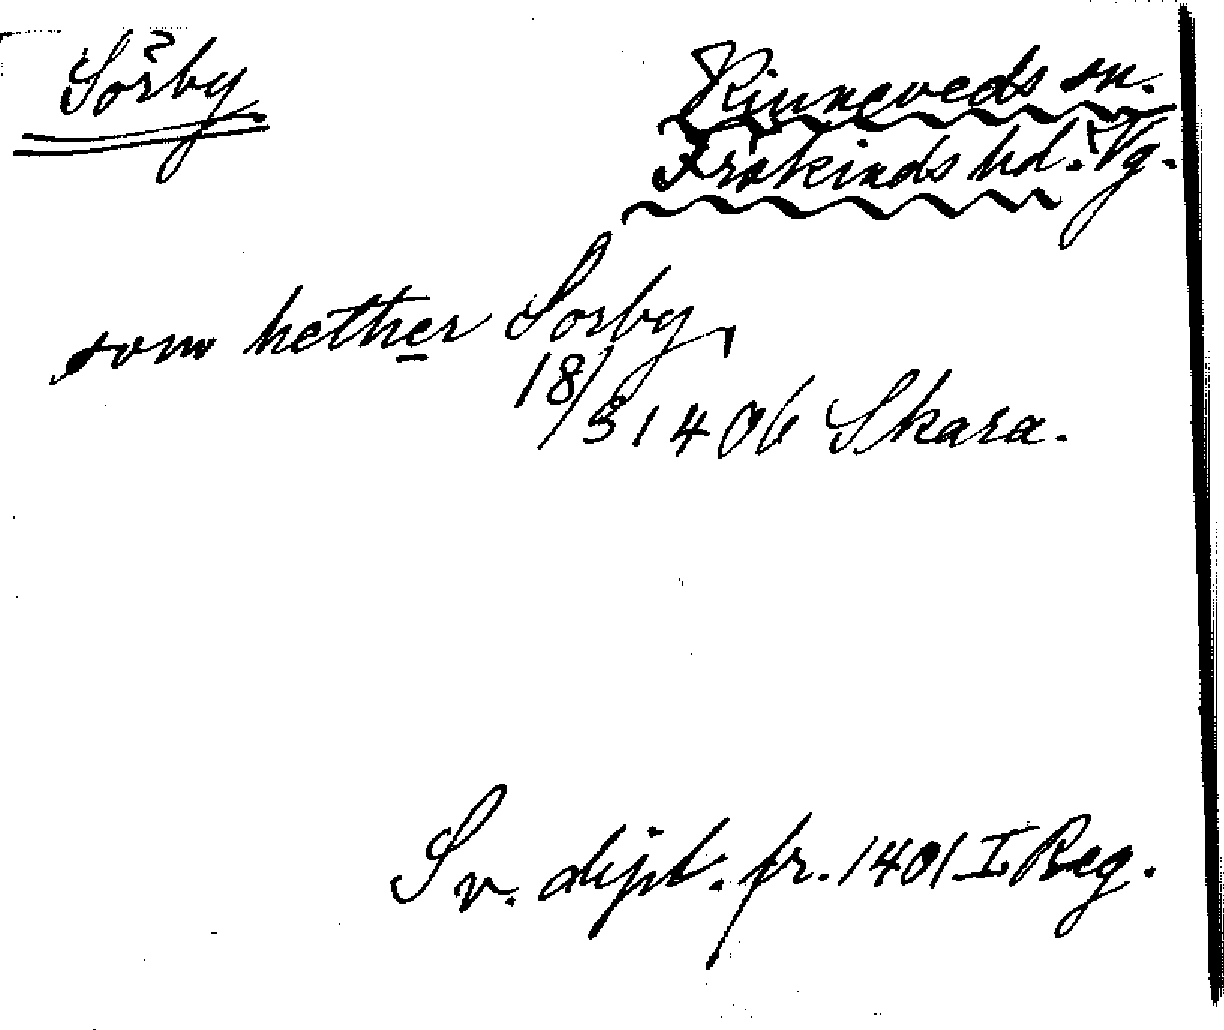 Sörby Kinneveds sn.
Frökinds hd. Vg.
som hether Sorby,
18/5 1406 Skara.
Sv. dipl. fr. 1401 I Reg.